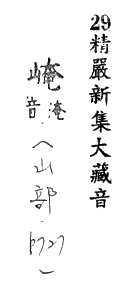 29精嚴新集大藏音
崦淹音(山部.6727)